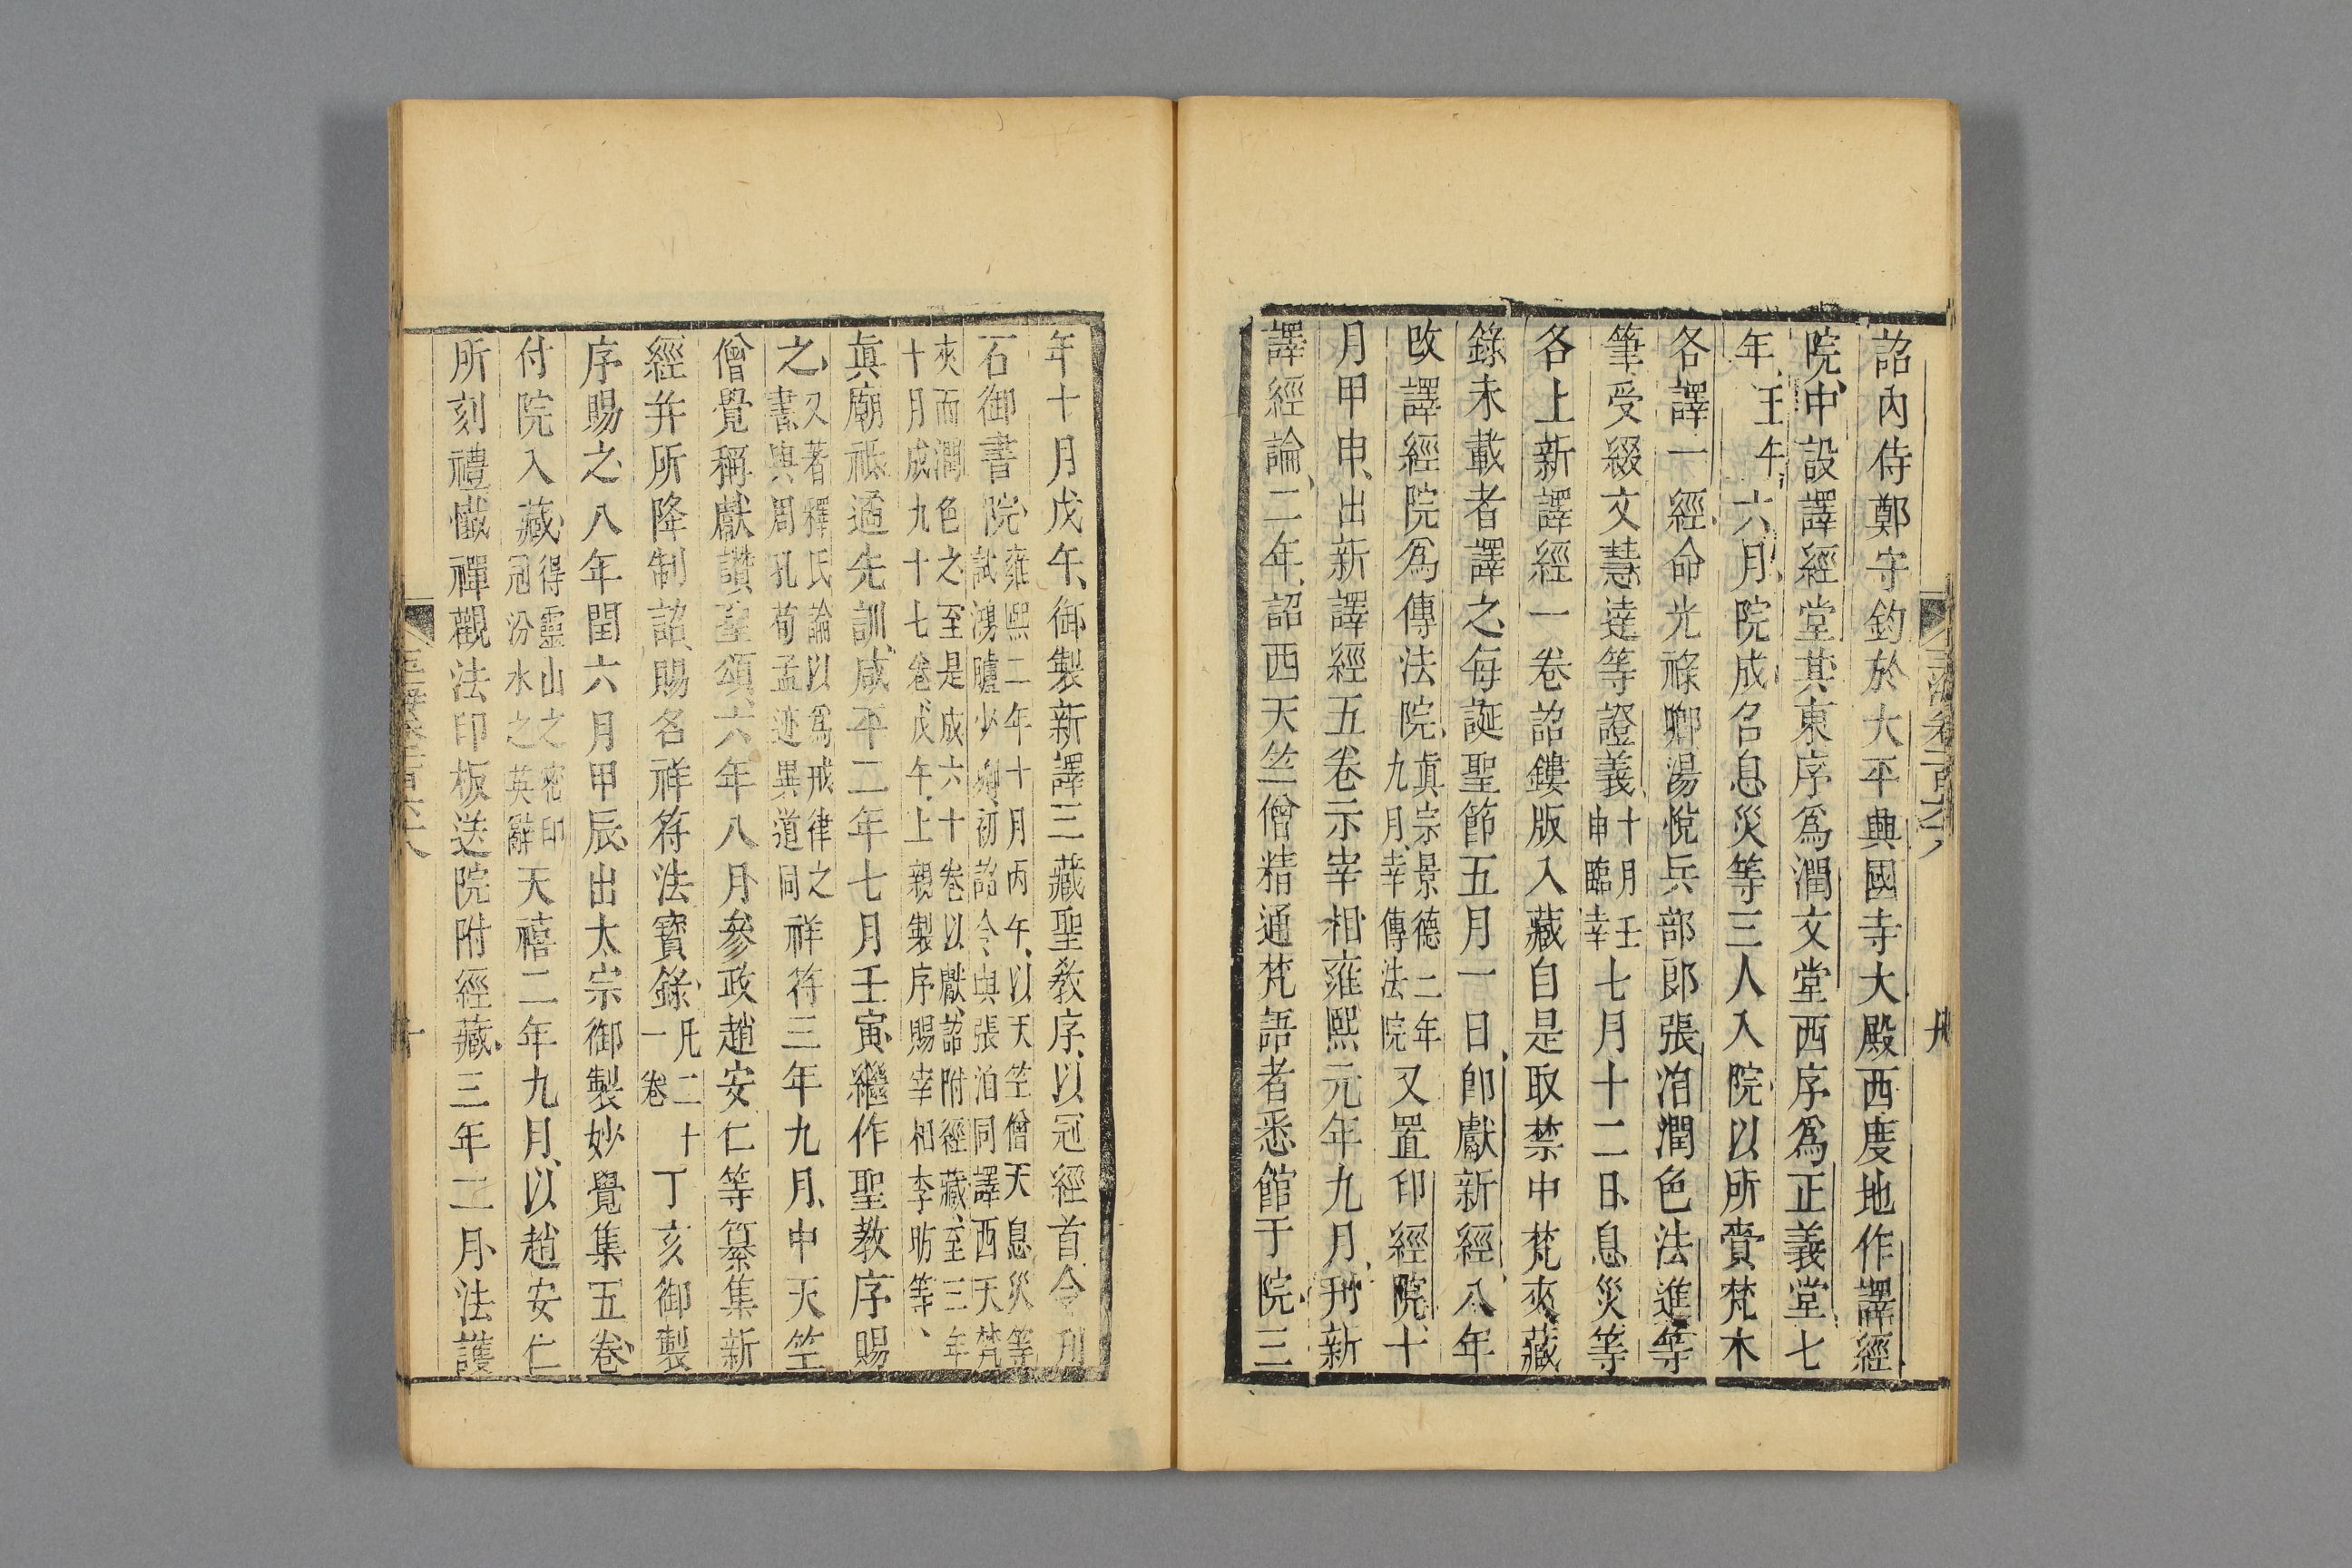 詔內侍鄭守鈞於大平興國寺大殿西度地作譯經
院中設譯經堂其東序爲潤文堂西序爲正義堂七
年壬午六月院成召息災等三人入院以所賫梵木
各譯一經命光祿卿湯悅兵部郎張洎潤色法進等
筆受綴文慧達等證義十月壬申臨幸七月十二日息災等
各上新譯經一卷詔鏤版入藏自是取禁中梵夾藏
錄未載者譯之每誕聖節五月一日卽獻新經八年
改譯經院爲傳法院眞宗景德二年九月幸傳法院又置印經院十
月甲申出新譯經五卷示宰相雍熙元年九月刊新
譯經論二年詔西天竺僧精通梵語者悉館于院三
年十月戊午御製新譯三藏聖敎序以冠經首令刋
石御書院雍熙二年十月丙午以天竺僧天息災等試鴻臚少卿初詔令與張洎同譯西天梵
夾而潤色之至是成六十卷以獻詔附經藏至三年十月成九十七卷戊午上親製序賜宰相李昉等
眞廟祗遹先訓咸平二年七月壬寅繼作聖敎序賜
之又著釋氏論以爲戒律之書與周孔荀孟迹異道同祥符三年九月中天竺
僧覺稱獻讚聖頌六年八月參政趙安仁等纂集新
經幷所降制詔賜名祥符法寶錄凡二十一卷丁亥御製
序賜之八年閏六月甲辰出太宗御製妙覺集五卷
付院入藏得靈山之密印冠汾水之英辭天禧二年九月以趙安仁
所刻禮懺禪觀法印板送院附經藏三年二月法護